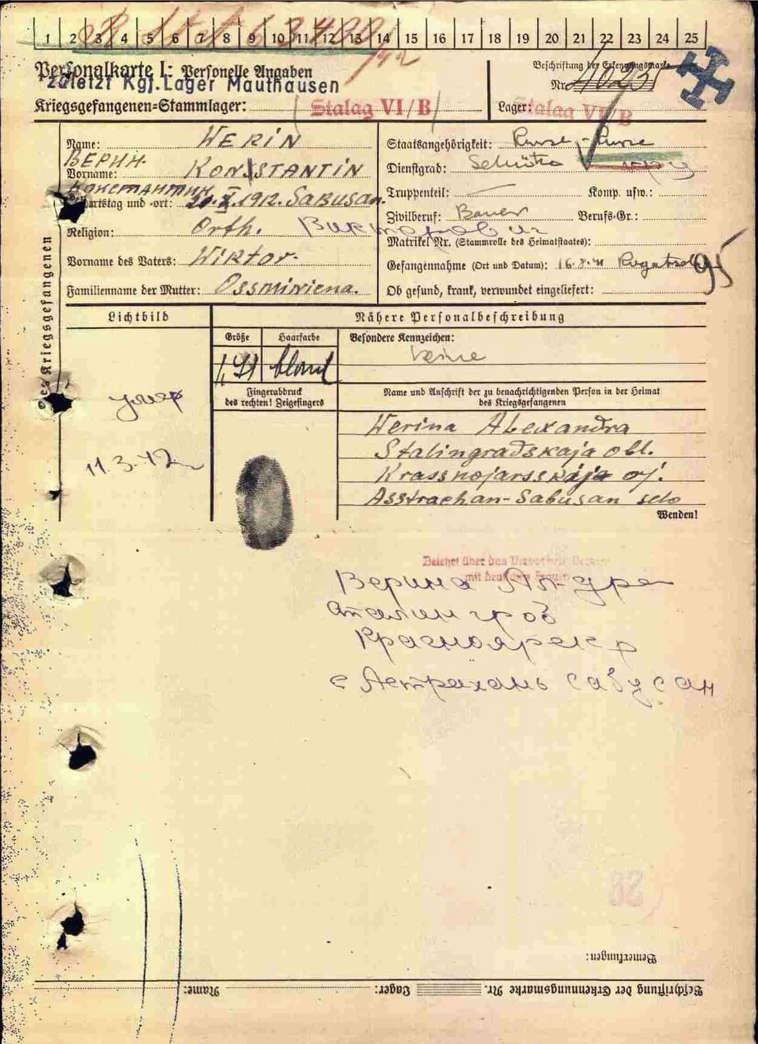 1 2 3 4 5 6 7 8 9 10 11 12 13 14 15 16 17 18 19 20 21 22 23 24 25
Personalkarte I: Personelle Angaben
zuletzt Kgf.Lager Mauthausen
Kriegsgefangenen-Stammlager: Stalag VI/B
Beschriftung der Erkennungsmarke
Nr.
Lager: Stalag VI/B
Name: WERIN
ВЕРИН.
Vorname: KONSTANTIN
Константин
Geburtstag und -ort: 1912. Sabusan.
Religion: Orth. Викторович
Vorname des Vaters: Wiktor.
Familienname der Mutter: Ossminiena.
Staatsangehörigkeit: Russe
Dienstgrad: Schütze
Truppenteil: Komp. usw.:
Zivilberuf: Bauer Berufs-Gr.:
Matrikel Nr. (Stammrolle des Heimatstaates):
Gefangennahme (Ort und Datum): 16.8.41
95
Ob gesund, krank, verwundet eingeliefert:
des Kriegsgefangenen
Lichtbild
11.3.42
Nähere Personalbeschreibung
Größe Haarfarbe Besondere Kennzeichen:
1,71 blond keine
Fingerabdruck
des rechten! Zeigefingers
Name und Anschrift der zu benachrichtigenden Person in der Heimat
des Kriegsgefangenen
Werina Alexandra
Stalingradskaja obl.
Krassnojarsskaja
Asstrachan-Sabusan selo
Wenden!
Belehrt über das Verbot
mit deutschen Frauen
Верина
Красноярск р
с Астрахань Сабусан
Bemerkungen:
Beschriftung der Erkennungsmarke Nr. Lager: Name: